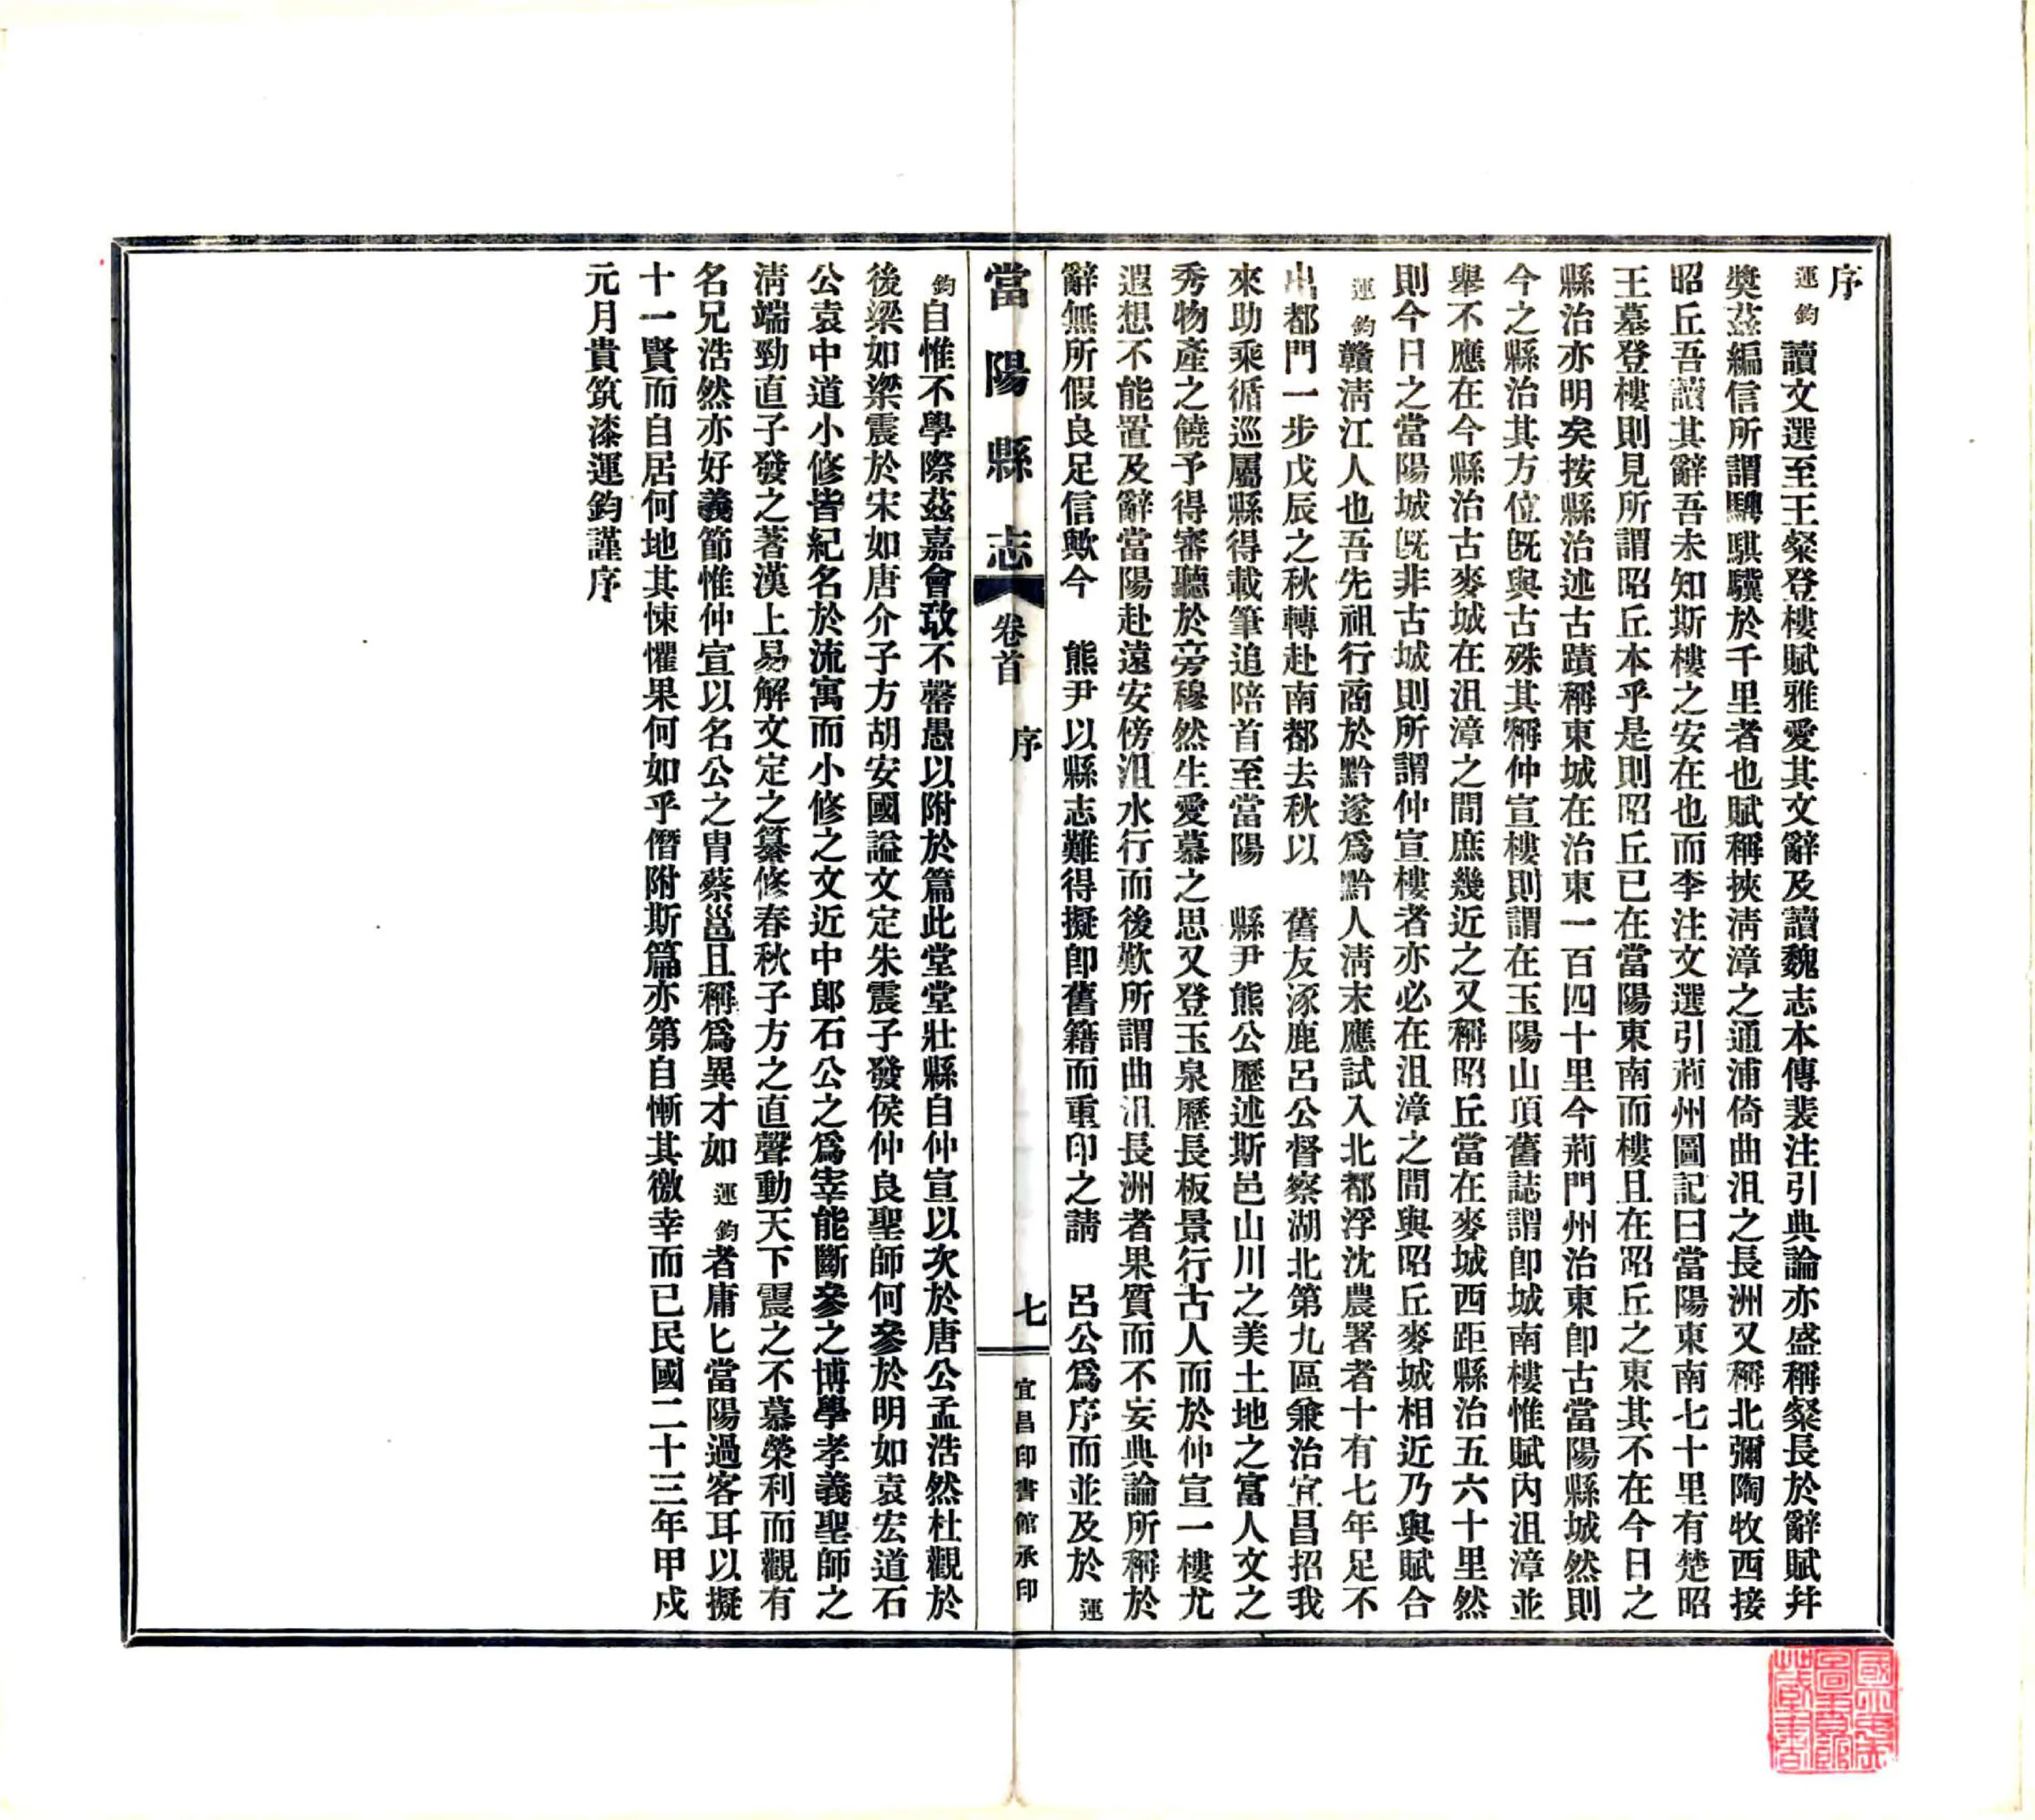 序
運鈞讀文選至王粲登樓賦雅愛其文辭及讀魏志本傳裴注引典論亦盛稱粲長於辭賦幷
奬茲編信所謂騁騏驥於千里者也賦稱挾淸漳之通浦倚曲沮之長洲又稱北彌陶牧西接
昭丘吾讀其辭吾未知斯樓之安在也而李注文選引荊州圖記曰當陽東南七十里有楚昭
王墓登樓則見所謂昭丘本乎是則昭丘已在當陽東南而樓且在昭丘之東其不在今日之
縣治亦明矣按縣治述古蹟稱東城在治東一百四十里今荊門州治東卽古當陽縣城然則
今之縣治其方位旣與古殊其稱仲宣樓則謂在玉陽山頂舊誌謂卽城南樓惟賦內沮漳並
舉不應在今縣治古麥城在沮漳之間庶幾近之又稱昭丘當在麥城西距縣治五六十里然
則今日之當陽城旣非古城則所謂仲宣樓者亦必在沮漳之間與昭丘麥城相近乃與賦合
運鈞贛淸江人也吾先祖行商於黔遂爲黔人淸末應試入北都浮沈農署者十有七年足不
出都門一步戊辰之秋轉赴南都去秋以　舊友涿鹿呂公督察湖北第九區兼治宜昌招我
來助乘循巡屬縣得載筆追陪首至當陽　縣尹熊公歷述斯邑山川之美土地之富人文之
秀物產之饒予得審聽於旁穆然生愛慕之思又登玉泉歷長板景行古人而於仲宣一樓尤
遐想不能置及辭當陽赴遠安傍沮水行而後歎所謂曲沮長洲者果質而不妄典論所稱於
辭無所假良足信歟今　熊尹以縣志難得擬卽舊籍而重印之請　呂公爲序而並及於運
當陽縣志　卷首　序　七　宜昌印書館承印
鈞自惟不學際茲嘉會敢不罄愚以附於篇此堂堂壯縣自仲宣以次於唐公孟浩然杜觀於
後梁如梁震於宋如唐介子方胡安國謚文定朱震子發侯仲良聖師何參於明如袁宏道石
公袁中道小修皆紀名於流寓而小修之文近中郎石公之爲宰能斷參之博學孝義聖師之
淸端勁直子發之著漢上易解文定之纂修春秋子方之直聲動天下震之不慕榮利而觀有
名兄浩然亦好義節惟仲宣以名公之胄蔡邕且稱爲異才如運鈞者庸匕當陽過客耳以擬
十一賢而自居何地其悚懼果何如乎僭附斯篇亦第自慚其徼幸而已民國二十三年甲戌
元月貴筑漆運鈞謹序